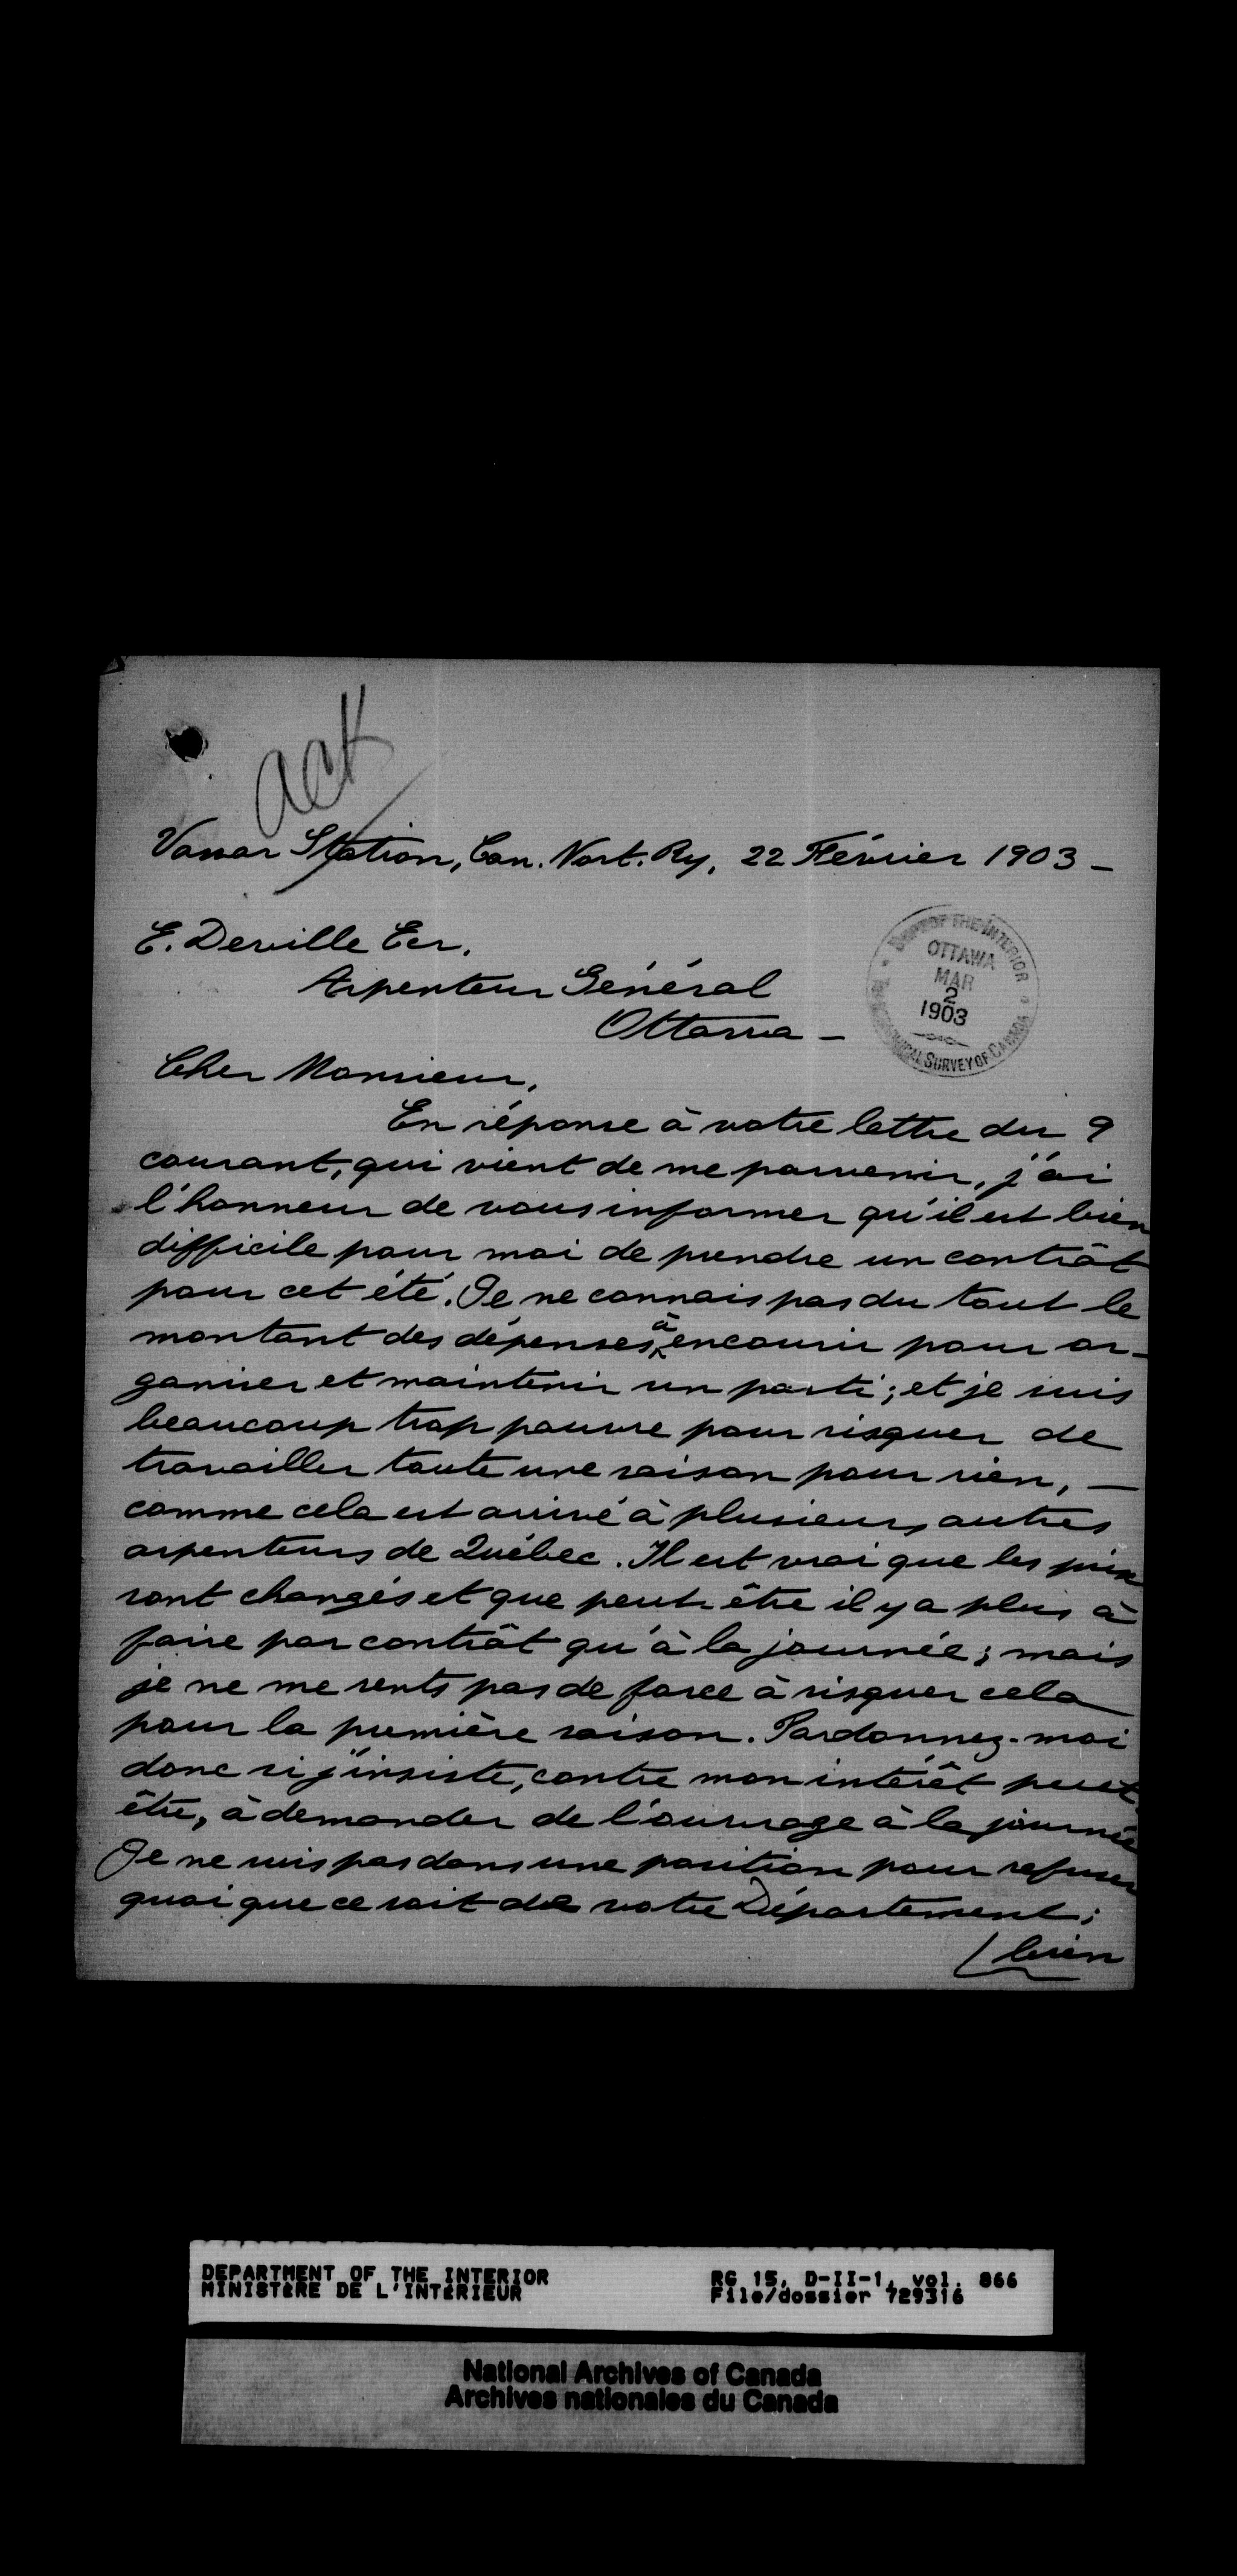 ack
Vassar Station, Can. Nort. Ry, 22 Février 1903 –
E. Deville Ecr.
Arpenteur Général
Ottawa –
DEPT OF THE INTERIOR
OTTAWA
MAR
2
1903
SURVEY OF CANADA
Cher Monsieur,
En réponse à votre lettre du 9
courant, qui vient de me parvenir, j'ai
l'honneur de vous informer qu'il est bien
difficile pour moi de prendre un contrât
pour cet été. Je ne connais pas du tout le
montant des dépenses à encourir pour or-
ganiser et maintenir un parti; et je suis
beaucoup trop pauvre pour risquer de
travailler toute une saison pour rien, –
comme cela est arrivé à plusieurs autres
arpenteurs de Québec. Il est vrai que les prix
sont changés et que peut-être il y a plus à
faire par contrât qu'à la journée; mais
je ne me sents pas de force à risquer cela
pour la première saison. Pardonnez-moi
donc si j'insiste, contre mon intérêt peut-
être, à demander de l'ouvrage à la journée
Je ne suis pas dans une position pour refuser
quoi que ce soit de votre Département;
bien
DEPARTMENT OF THE INTERIOR
MINISTÈRE DE L'INTÉRIEUR
RG 15, D-II-1, vol. 866
File/dossier 729316
National Archives of Canada
Archives nationales du Canada